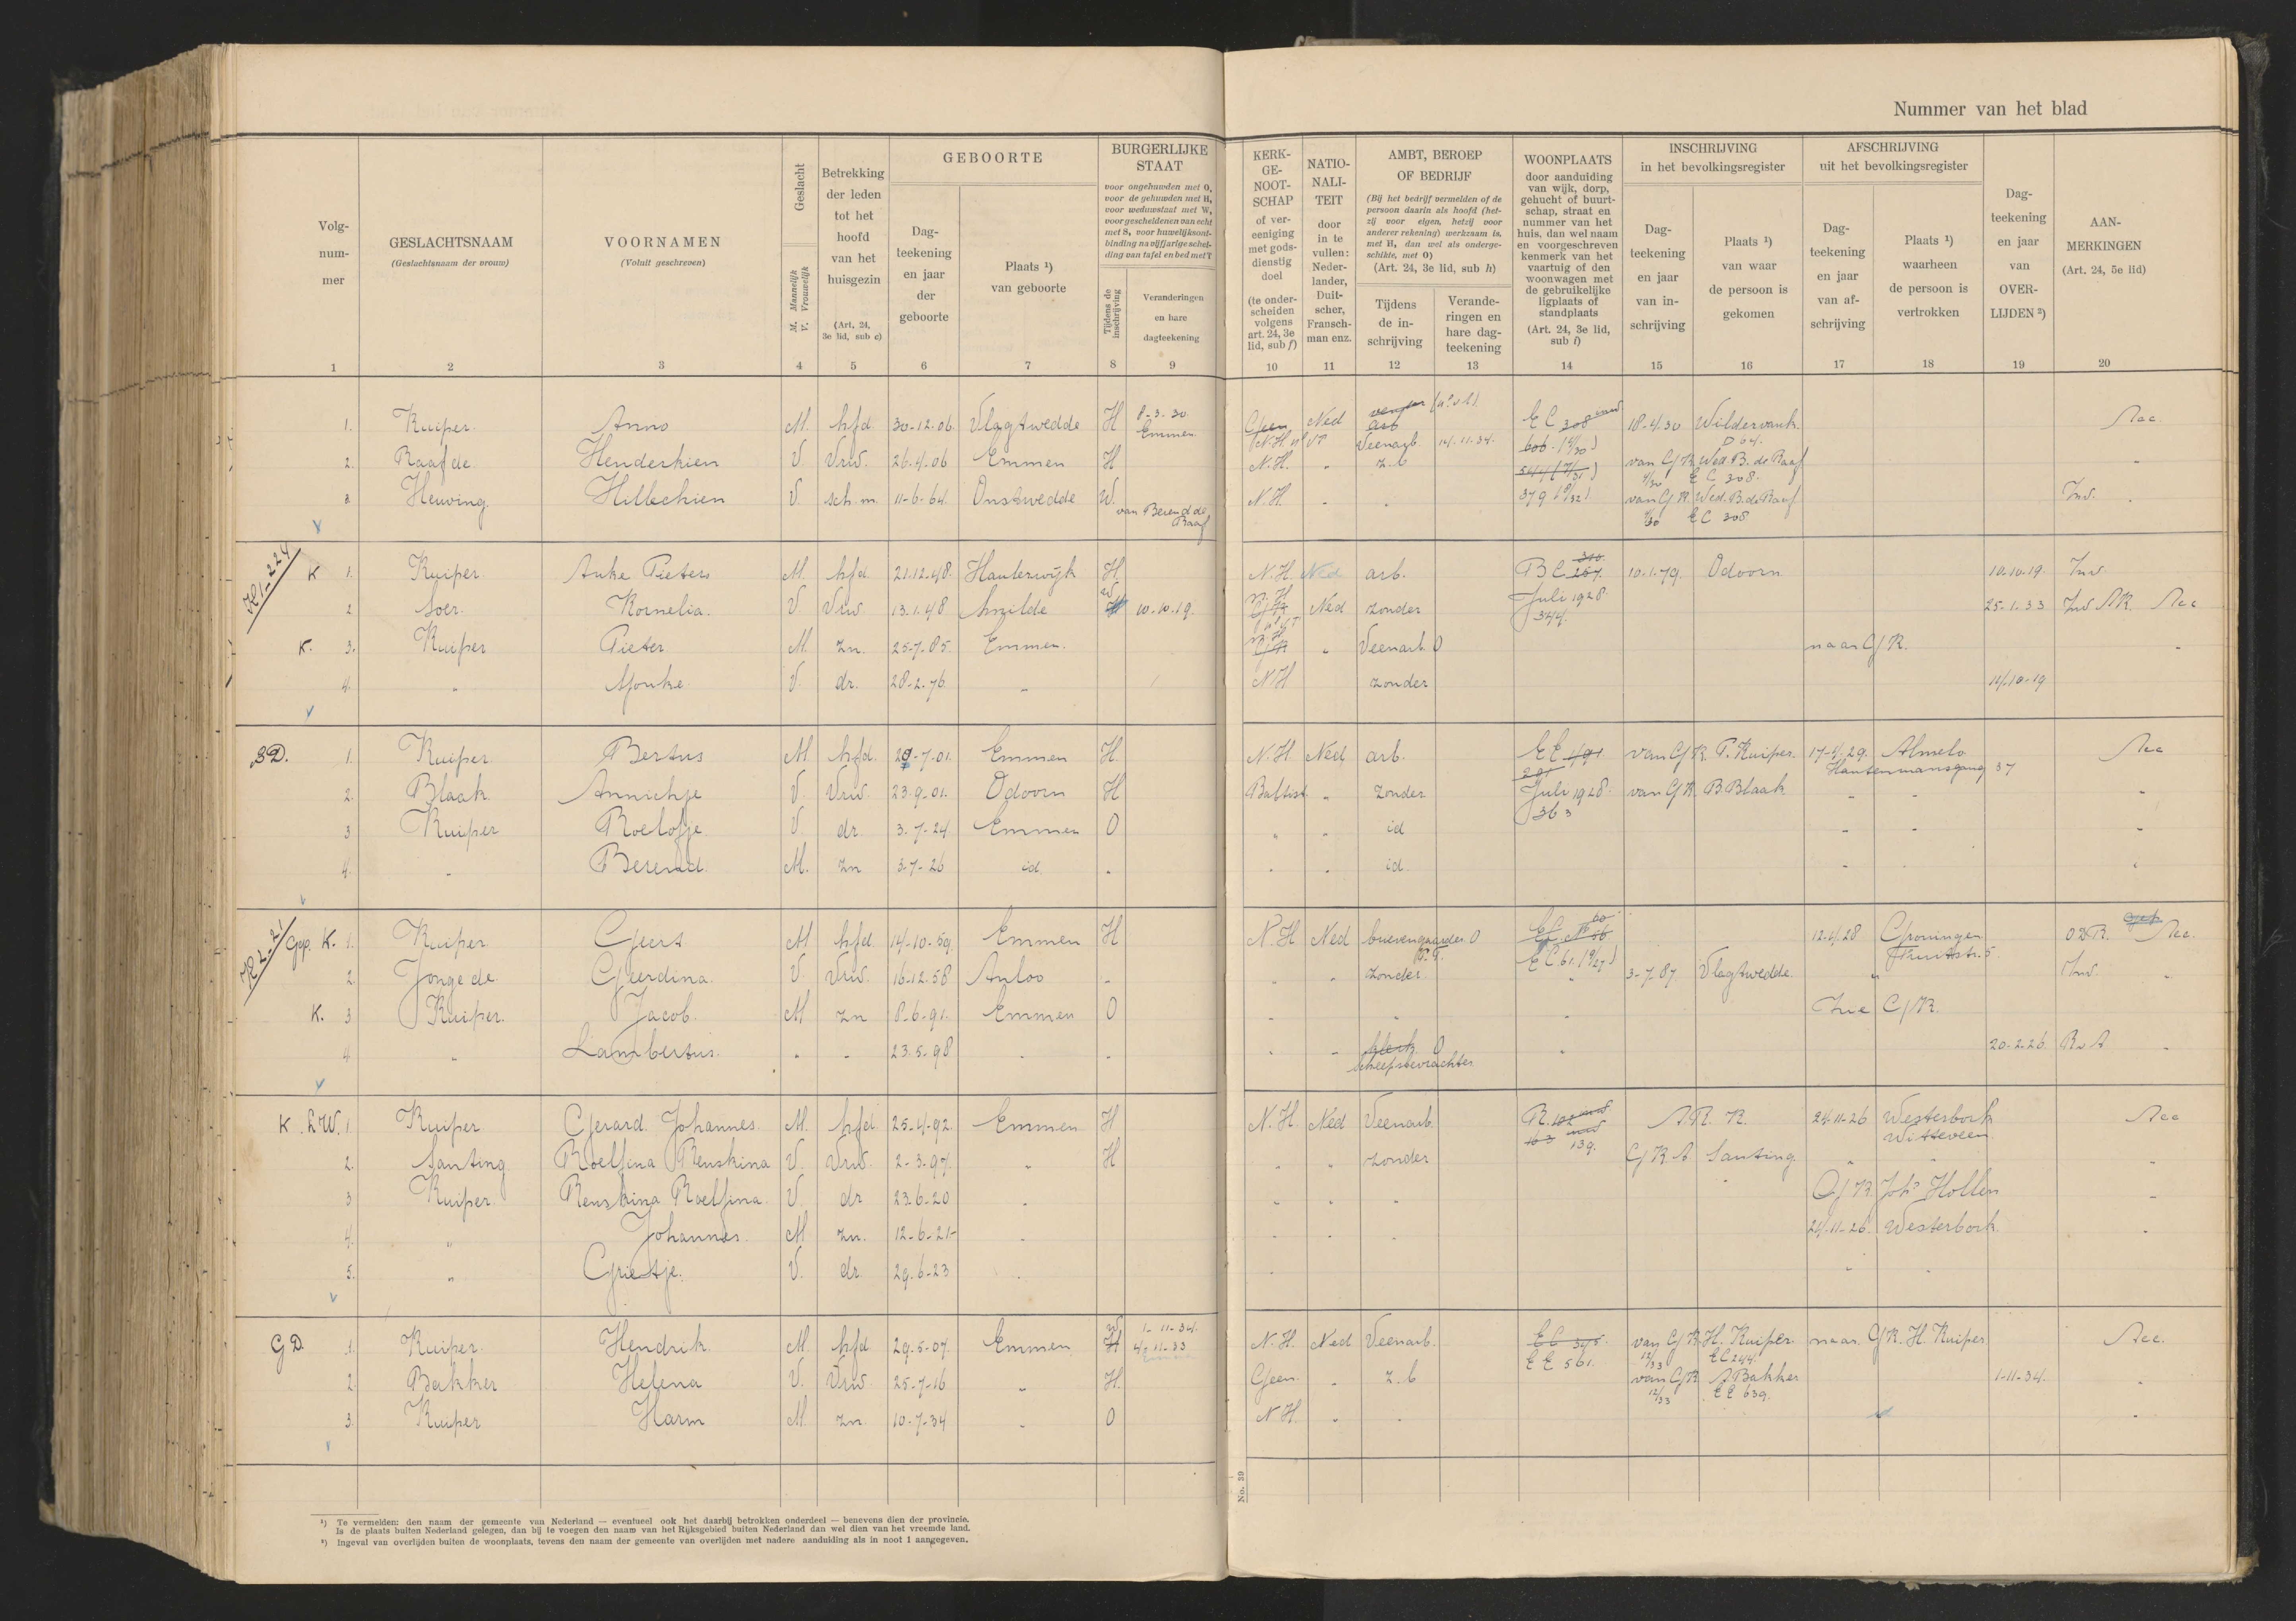 Nummer van het blad
Volg-
num-
mer
GESLACHTSNAAM
(Geslachtsnaam der vrouw)
VOORNAMEN
(Voluit geschreven)
Geslacht
M. Mannelijk
V. Vrouwelijk
Betrekking
der leden
tot het
hoofd
van het
huisgezin
(Art. 24,
3e lid, sub c)
GEBOORTE
Dag-
teekening
en jaar
der
geboorte
Plaats ¹)
van geboorte
BURGERLIJKE
STAAT
voor ongehuwden met O,
voor de gehuwden met H,
voor weduwstaat met W,
voor gescheidenen van echt
met S, voor huwelijksont-
binding na vijfjarige schei-
ding van tafel en bed met T
Tijdens de
inschrijving
Veranderingen
en hare
dagteekening
KERK-
GE-
NOOT-
SCHAP
of ver-
eeniging
met gods-
dienstig
doel
(te onder-
scheiden
volgens
art. 24, 3e
lid, sub f)
NATIO-
NALI-
TEIT
door
in te
vullen:
Neder-
lander,
Duit-
scher,
Fransch-
man enz.
AMBT, BEROEP
OF BEDRIJF
(Bij het bedrijf vermelden of de
persoon daarin als hoofd (het-
zij voor eigen, hetzij voor
anderer rekening) werkzaam is,
met H, dan wel als onderge-
schikte, met O)
(Art. 24, 3e lid, sub h)
Tijdens
de in-
schrijving
Verande-
ringen en
hare dag-
teekening
WOONPLAATS
door aanduiding
van wijk, dorp,
gehucht of buurt-
schap, straat en
nummer van het
huis, dan wel naam
en voorgeschreven
kenmerk van het
vaartuig of den
woonwagen met
de gebruikelijke
ligplaats of
standplaats
(Art. 24, 3e lid,
sub l)
INSCHRIJVING
in het bevolkingsregister
Dag-
teekening
en jaar
van in-
schrijving
Plaats ¹)
van waar
de persoon is
gekomen
AFSCHRIJVING
uit het bevolkingsregister
Dag-
teekening
en jaar
van af-
schrijving
Plaats ¹)
waarheen
de persoon is
vertrokken
Dag-
teekening
en jaar
van
OVER-
LIJDEN ²)
AAN-
MERKINGEN
(Art. 24, 5e lid)
1 2 3 4 5 6 7 8 9 10 11 12 13 14 15 16 17 18 19 20
1. Kuiper Anno M. hfd 30-12-06 Vlagtwedde H 8-3-30 Emmen Geen Ned arb EC 308 18-4-30 Wildervank Acc
N.H. Veenarb 14-11-34 606 D 64
2. Raaf de Henderkien V. Vrw. 26-4-06 Emmen H N.H. " z.b van GK Wed. B. de Raaf "
EC 308
3 Heuving Hillechien V. sch.m. 11-6-64 Onstwedde W. N.H. " " 379 van GK Wed. B. de Raaf Inv. "
van Berend de Raaf EC 308
K1-224
K 1. Kuiper Anke Pieters M. hfd 21-12-48 Hauterwijk H N.H. Ned arb. BC 257 310 10-1-79. Odoorn 10-10-19. Inv
2 Soer Kornelia. V. Vrw. 13-1-48 Smilde W 10-10-19. N.H. Ned zonder Juli 1928 344. 25-1-33 Inv AR. Acc
K. 3. Kuiper Pieter M. zn. 25-7-85. Emmen. N.H " Veenarb. O naar GK. "
4. " Sjouke V. dr. 28-2-76 " N.H zonder 14-10-19
BD. 1. Kuiper Bertus M hfd. 20-7-01. Emmen H. N.H. Ned arb. EE 491 van GK. P. Kuiper. 17-4-29. Almelo Acc
291 Hantenmansgang 37
2. Blaak Annichje V. Vrw. 23-9-01. Odoorn H Babtist " zonder Juli 1928. van GK. B Blaak " " "
363
3 Kuiper Roelofje V. dr. 3-7-24 Emmen O " " id " " "
4. " Berend. M. zn 3-7-26 id. " " " id " "
K2-21
Gep. K. 1. Kuiper Geert M hfd 14-10-59. Emmen H N.H Ned brievengaarder O 12-4-28 Groningen Acc.
EC 61.
2. Jonge de Geerdina V. Vrw. 16-12-58 Anloo " " " zonder " 3-7-87 Vlagtwedde. " Inv. "
K. 3 Kuiper. Jacob. M zn 8-6-91. Emmen O " " " Zie GK.
4 " Lambertus. " " 23-5-98 " " " " klerk O " 20-2-26. "
scheepsbevrachter
K. LW. 1. Kuiper Gerard Johannes. M. hfd. 25-4-92. Emmen H N.H. Ned Veenarb. R. 102 A.R. K. 24-11-26 Westerbork Acc
163 139. Witteveen
2. Santing Roelfina Renskina V. Vrw. 2-3-97. " H " " zonder GK A Santing. " " "
3 Kuiper Renskina Roelfina V. dr 23-6-20 " " " " " GK. Johs Hollen "
4. " Johannes. M zn. 12-6-21 " " " " 24-11-26. Westerbork. "
5. " Grietje. V. dr. 29-6-23 " " " "
GD. 1. Kuiper. Hendrik M hfd 29-5-07 Emmen W 1-11-34. N.H. Ned Veenarb. EC 345. van GK H. Kuiper. naar GK. H. Kuiper Acc.
H 4-11-33 EE 561. 12/33 EC 244.
2. Bakker Helena V. Vrw 25-7-16 " H. Geen. " z.b van GK A Bakker 1-11-34. "
12/33 EE 639.
3. Kuiper Harm M. zn. 10-7-34 " O N.H. " " "
No. 39
¹) Te vermelden: den naam der gemeente van Nederland — eventueel ook het daarbij betrokken onderdeel — benevens dien der provincie.
Is de plaats buiten Nederland gelegen, dan bij te voegen den naam van het Rijksgebied buiten Nederland dan wel dien van het vreemde land.
²) Ingeval van overlijden buiten de woonplaats, tevens den naam der gemeente van overlijden met nadere aanduiding als in noot 1 aangegeven.